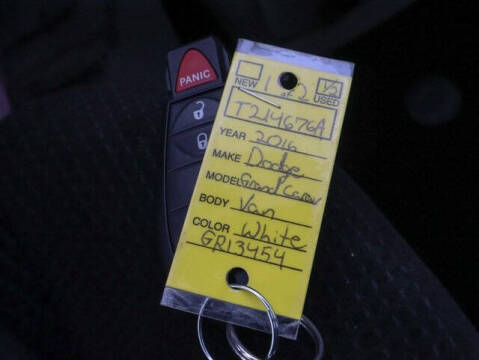 PANIC
1 of 2
NEW 1/2 USED
T214676A
YEAR 2016
MAKE Dodge
MODEL Grand Carav
BODY Van
COLOR White
GR13454